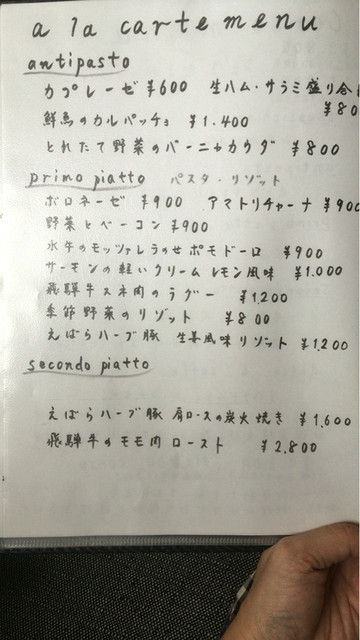 a la carte menu
antipasto
カプレーゼ ¥600 生ハム・サラミ盛り合
¥80
鮮魚のカルパッチョ ¥1.400
とれたて野菜のバーニャカウダ ¥800
primo piatto パスタ・リゾット
ボロネーゼ ¥900 アマトリチャーナ ¥900
野菜とベーコン ¥900
水牛のモッツァレラのせ ポモドーロ ¥900
サーモンの軽いクリーム レモン風味 ¥1.000
飛騨牛スネ肉のラグー ¥1,200
季節野菜のリゾット ¥800
えばらハーブ豚 生姜風味リゾット ¥1,200
secondo piatto
えばらハーブ豚 肩ロースの炭火焼き ¥1,600
飛騨牛のモモ肉ロースト ¥2.800